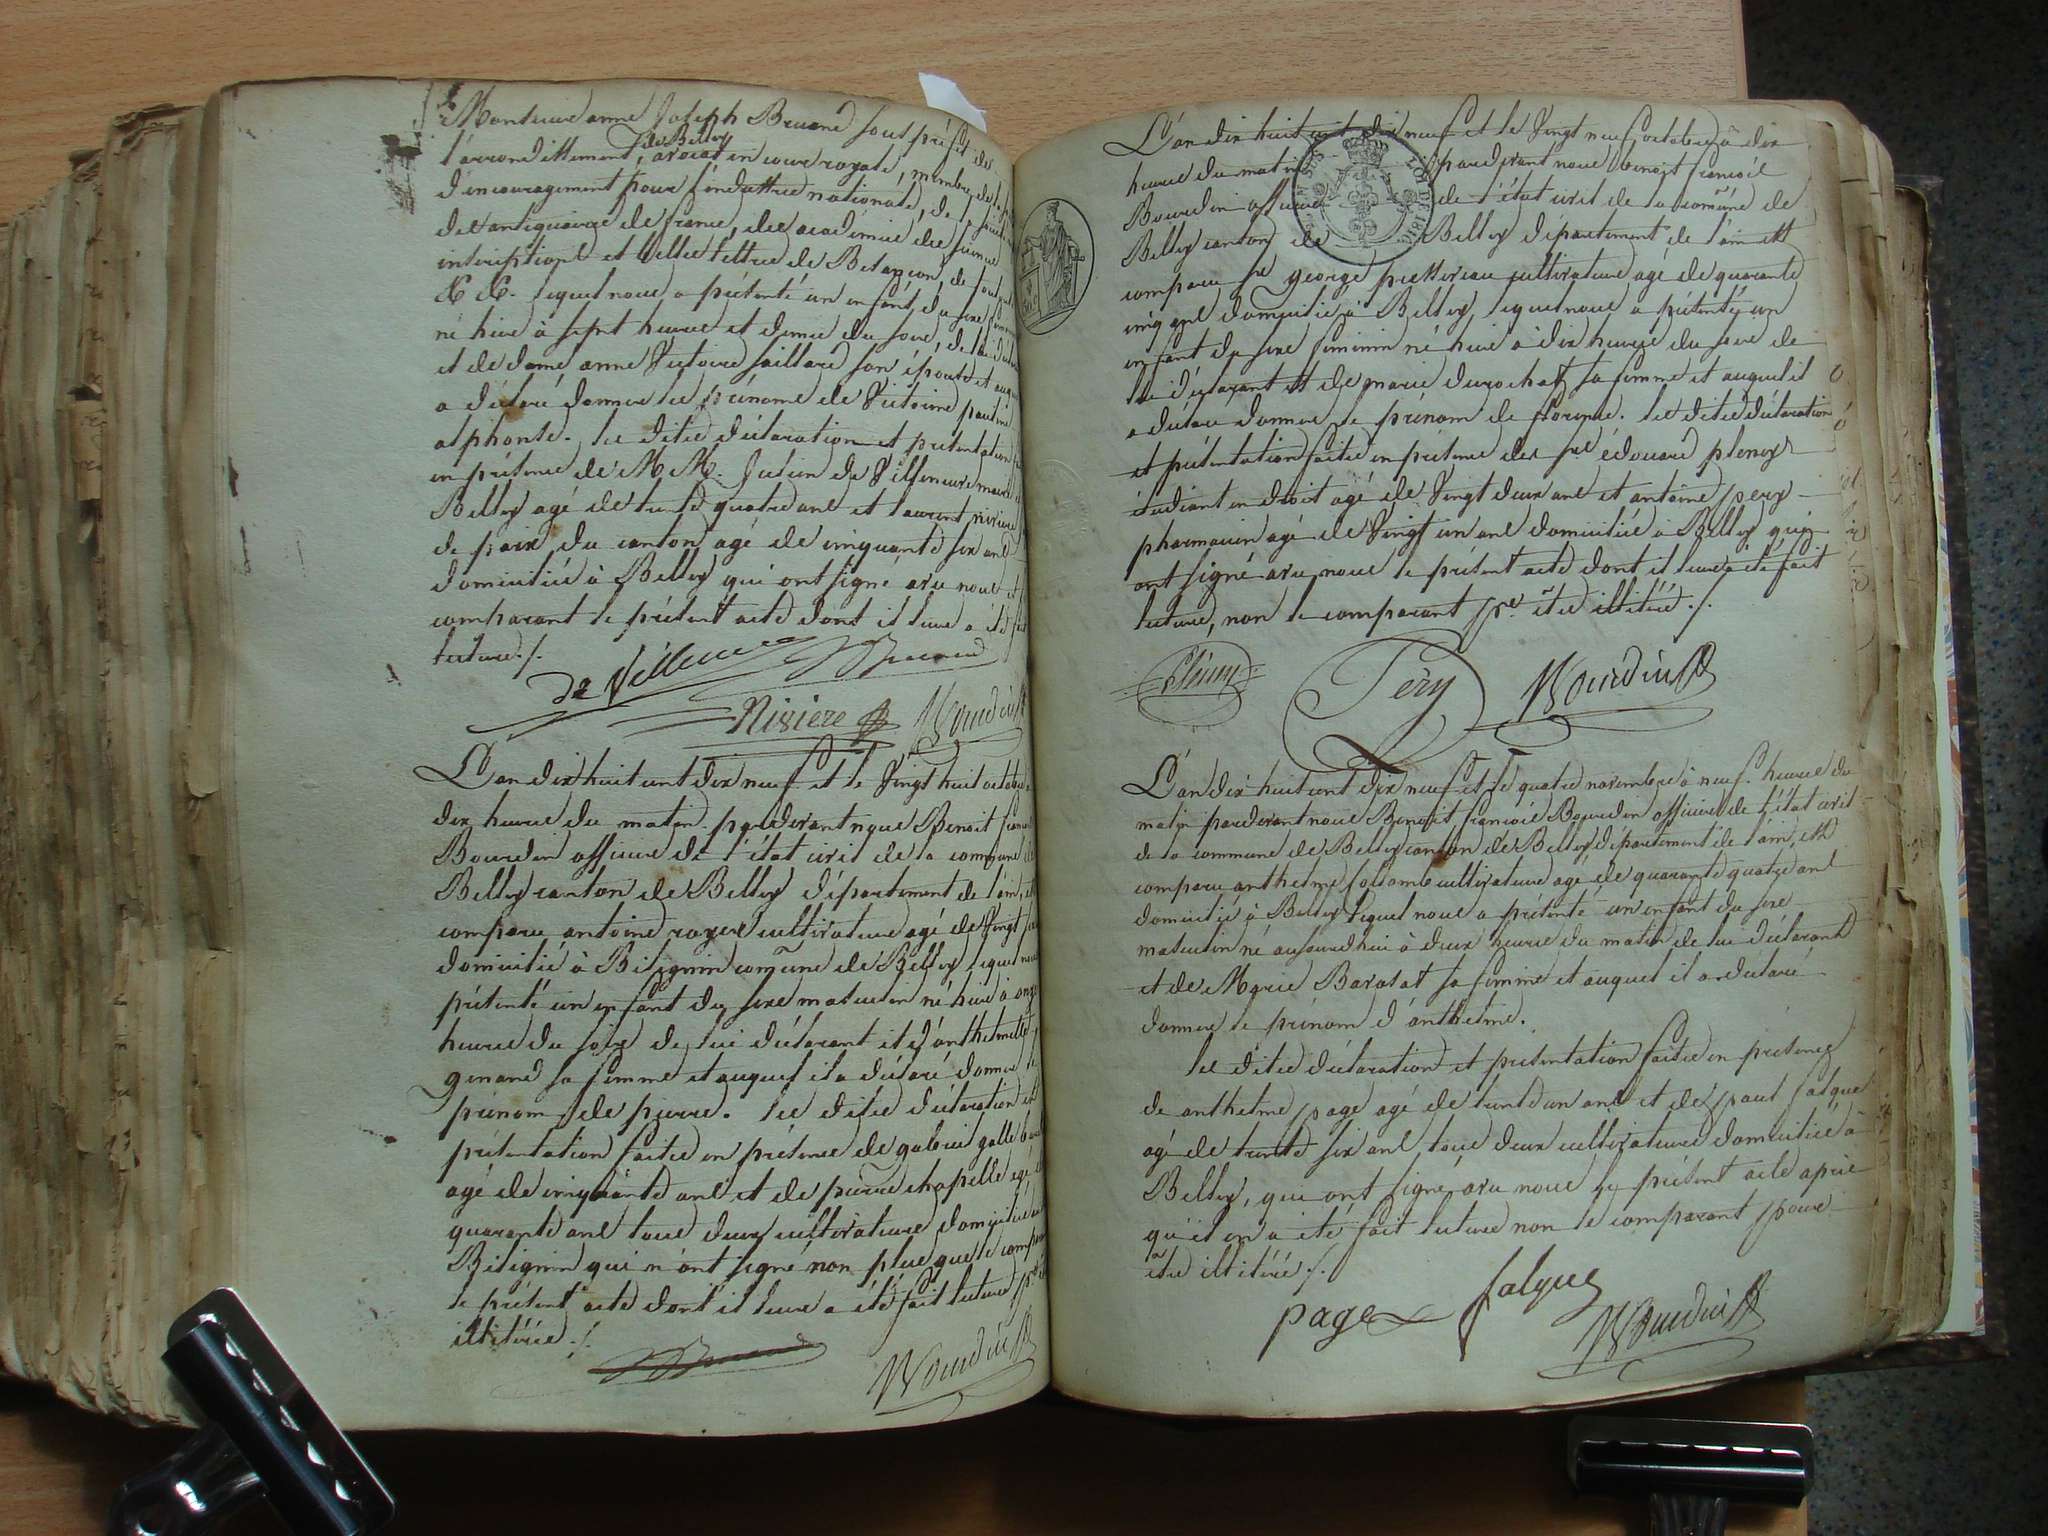 Monsieur anne Joseph Bruand sous préfet de
l'arrondissement de Belley, avocat en cour royale, membre de la
d'encouragement pour l'industrie nationale, de la société
des antiquaires de france, des académies des sciences
inscriptions et belles lettres de Besançon, de
&c &c. lequel nous a présenté un enfant du sexe
né hier à sept heures et demie du soir, de lui déclarant
et de dame anne Victoire Saillard son épouse et auquel
a déclaré donner les prénoms de Victorine pauline
alphonse. les dites déclaration et présentation
en présence de MM. Julien de Villeneuve maire
Belley agé de trente quatre ans et laurent riviere
de paix du canton agé de cinquante six ans
domiciliés à Belley qui ont signé avec nous et
comparant le présent acte dont il leur a été fait
lecture ./.
de Villeneuve Bruand
Riviere Bourdin
L'an dix huit cent dix neuf et le vingt huit octobre
dix heures du matin pardevant nous Benoit françois
Bourdin officier de l'état civil de la commune de
Belley canton de Belley département de l'ain, est
comparu antoine royer cultivateur agé de vingt
domicilié à Bilignin comune de Belley lequel nous
présenté un enfant du sexe masculin né hier à onze
heures du soir de lui déclarant et d'anthelmette
genand sa femme et auquel il a déclaré donner le
prénom de pierre. les dites déclaration et
présentation faites en présence de gabriel gallet
agé de cinquante ans et de pierre chapelle agé de
quarante ans tous deux cultivateurs domiciliés au
Bilignin qui n'ont signé non plus que le comparant
le présent acte dont il leur a été fait lecture pr
illitérés ./.
Bourdin
L'an dix huit cent dix neuf et le vingt neuf octobre à dix
heures du matin pardevant nous benoit francois
Bourdin officier de l'état civil de la comune de
Belley canton de Belley département de l'ain est
comparu sr george prettereau cultivateur agé de quarante
cinq ans domicilié à Belley, lequel nous a présenté un
enfant du sexe feminin né hier à dix heures du soir de
lui déclarant et de marie durochat sa femme et auquel il
a déclaré donner le prénom de florine. les dites déclaration
et présentation faites en présence des srs édouard pleney
étudiant en droit agé de vingt deux ans et antoine pery
pharmacien agé de vingt un ans domiciliés à Belley qui
ont signé avec nous le présent acte dont il leur a été fait
lecture, non le comparant pr être illitéré ./.
Pery Bourdin
L'an dix huit cent dix neuf et le quatre novembre à neuf heures du
matin pardevant nous Benoit francois Bourdin officier de l'état civil
de la commune de Belley canton de Belley département de l'ain, est
comparu anthelme Collomb cultivateur agé de quarante quatre ans
domicilié à Belley lequel nous a présenté un enfant du sexe
masculin né aujourdhui à deux heures du matin de lui déclarant
et de Marie Baratat sa femme et auquel il a déclaré
donner le prénom d'anthelme.
les dites déclaration et présentation faites en présence
de anthelme page agé de trente un ans et de paul falque
agé de trente six ans, tous deux cultivateurs domiciliés à
Belley, qui ont signé avec nous le présent acte après
qu'il en a été fait lecture non le comparant pour
être illitéré ./.
page falque
Bourdin